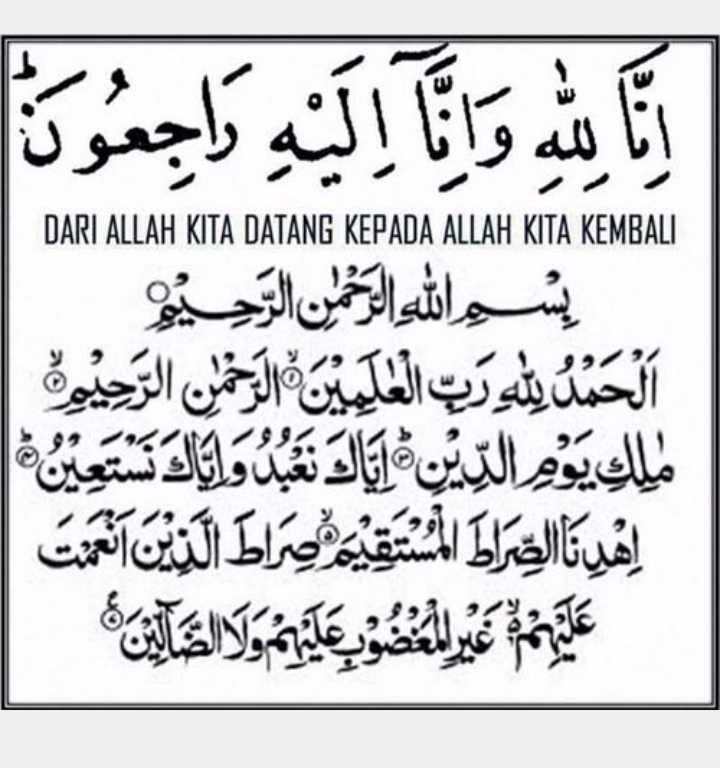 اِنَّا لِلّٰهِ وَاِنَّآ اِلَيْهِ رَاجِعُوْنَؕ
DARI ALLAH KITA DATANG KEPADA ALLAH KITA KEMBALI
بِسْمِ اللّٰهِ الرَّحْمٰنِ الرَّحِيْمِ
اَلْحَمْدُ لِلّٰهِ رَبِّ الْعٰلَمِيْنَۙ۱ الرَّحْمٰنِ الرَّحِيْمِۙ۲
مٰلِكِ يَوْمِ الدِّيْنِؕ۳ اِيَّاكَ نَعْبُدُ وَاِيَّاكَ نَسْتَعِيْنُؕ۴
اِهْدِنَا الصِّرَاطَ الْمُسْتَقِيْمَۙ۵ صِرَاطَ الَّذِيْنَ اَنْعَمْتَ
عَلَيْهِمْ۬ۙ۶ غَيْرِ الْمَغْضُوْبِ عَلَيْهِمْ وَلَا الضَّآلِّيْنَ۷